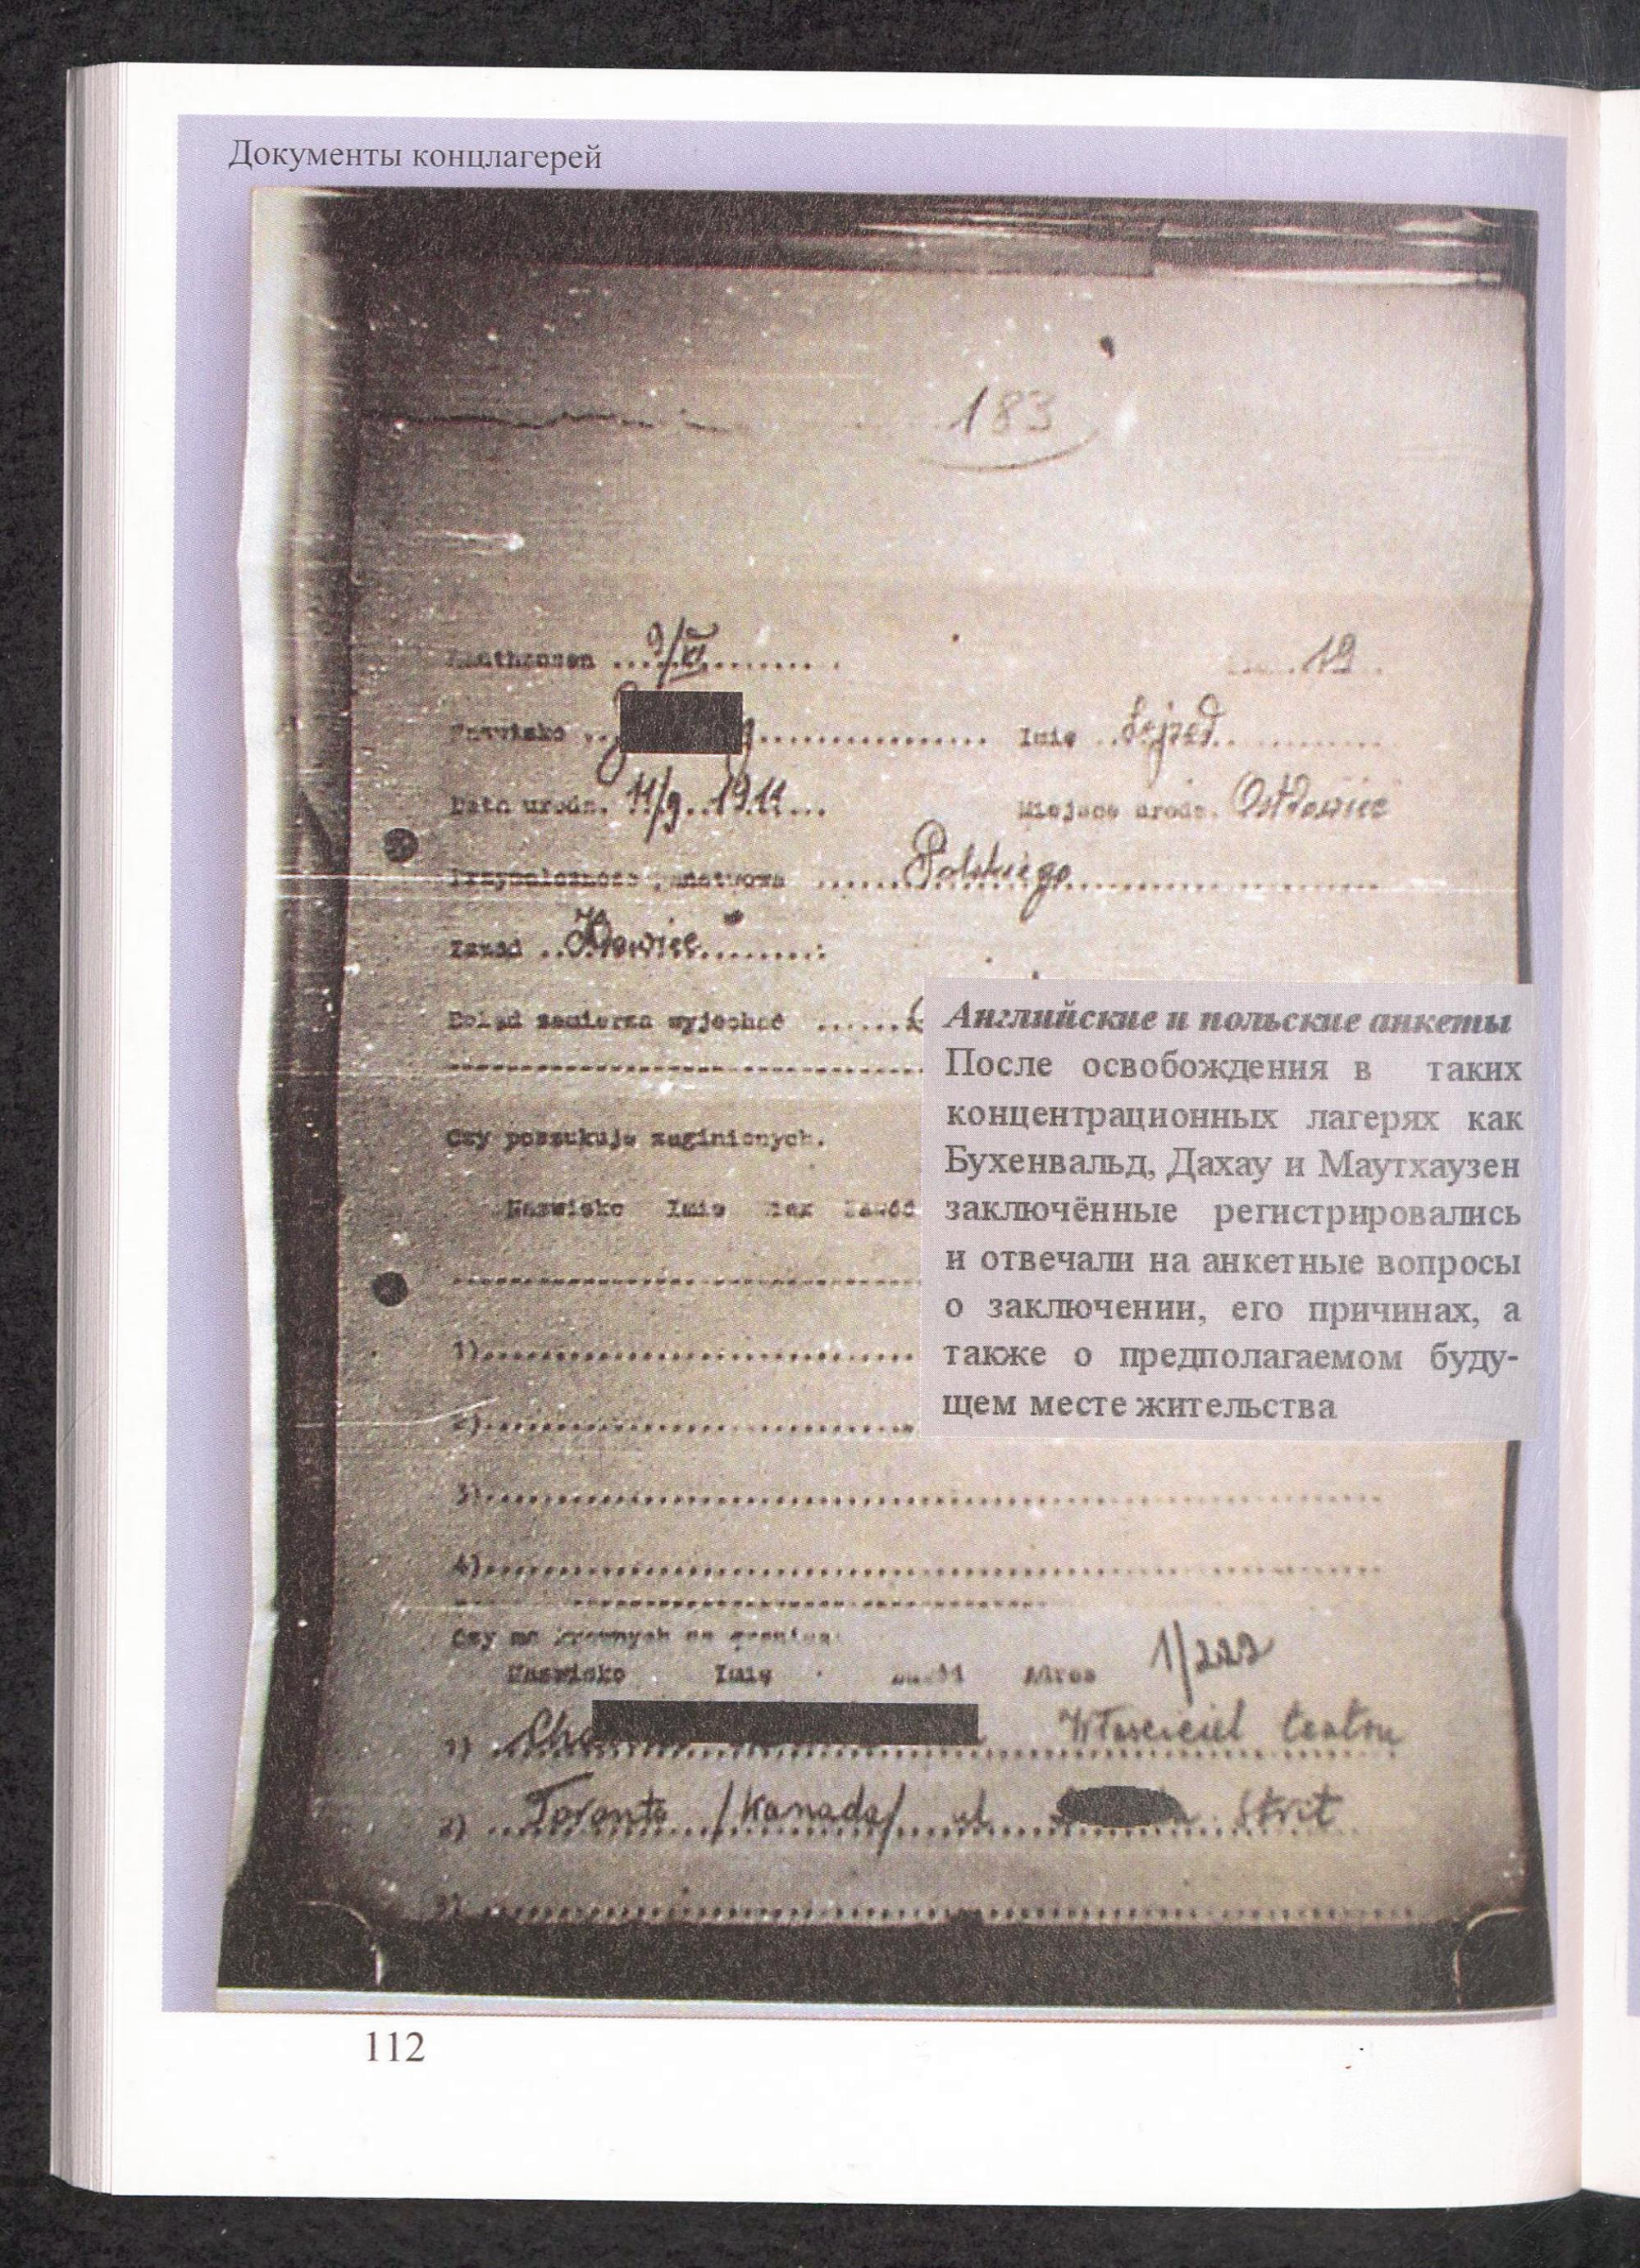 Документы концлагерей
183
Mauthausen ... 9/VI ... 19
Nazwisko ... Imię ..
Data urodz. 11/9..1911... Miejsce urodz. Ostrowiec
Przynależność państwowa ...... Polskiego
Zawód ..
Dokąd zamierza wyjechać ......
Czy poszukuje zaginionych.
Nazwisko Imię Zawód
1)
2)
3)
4)
Czy ma krewnych za granicą:
Nazwisko Imię Zawód Adres 1/222
1) Cha Właściciel teatru
2) Toronto /Kanada/ ul Strit
3)
Английские и польские анкеты
После освобождения в таких
концентрационных лагерях как
Бухенвальд, Дахау и Маутхаузен
заключённые регистрировались
и отвечали на анкетные вопросы
о заключении, его причинах, а
также о предполагаемом буду-
щем месте жительства
112